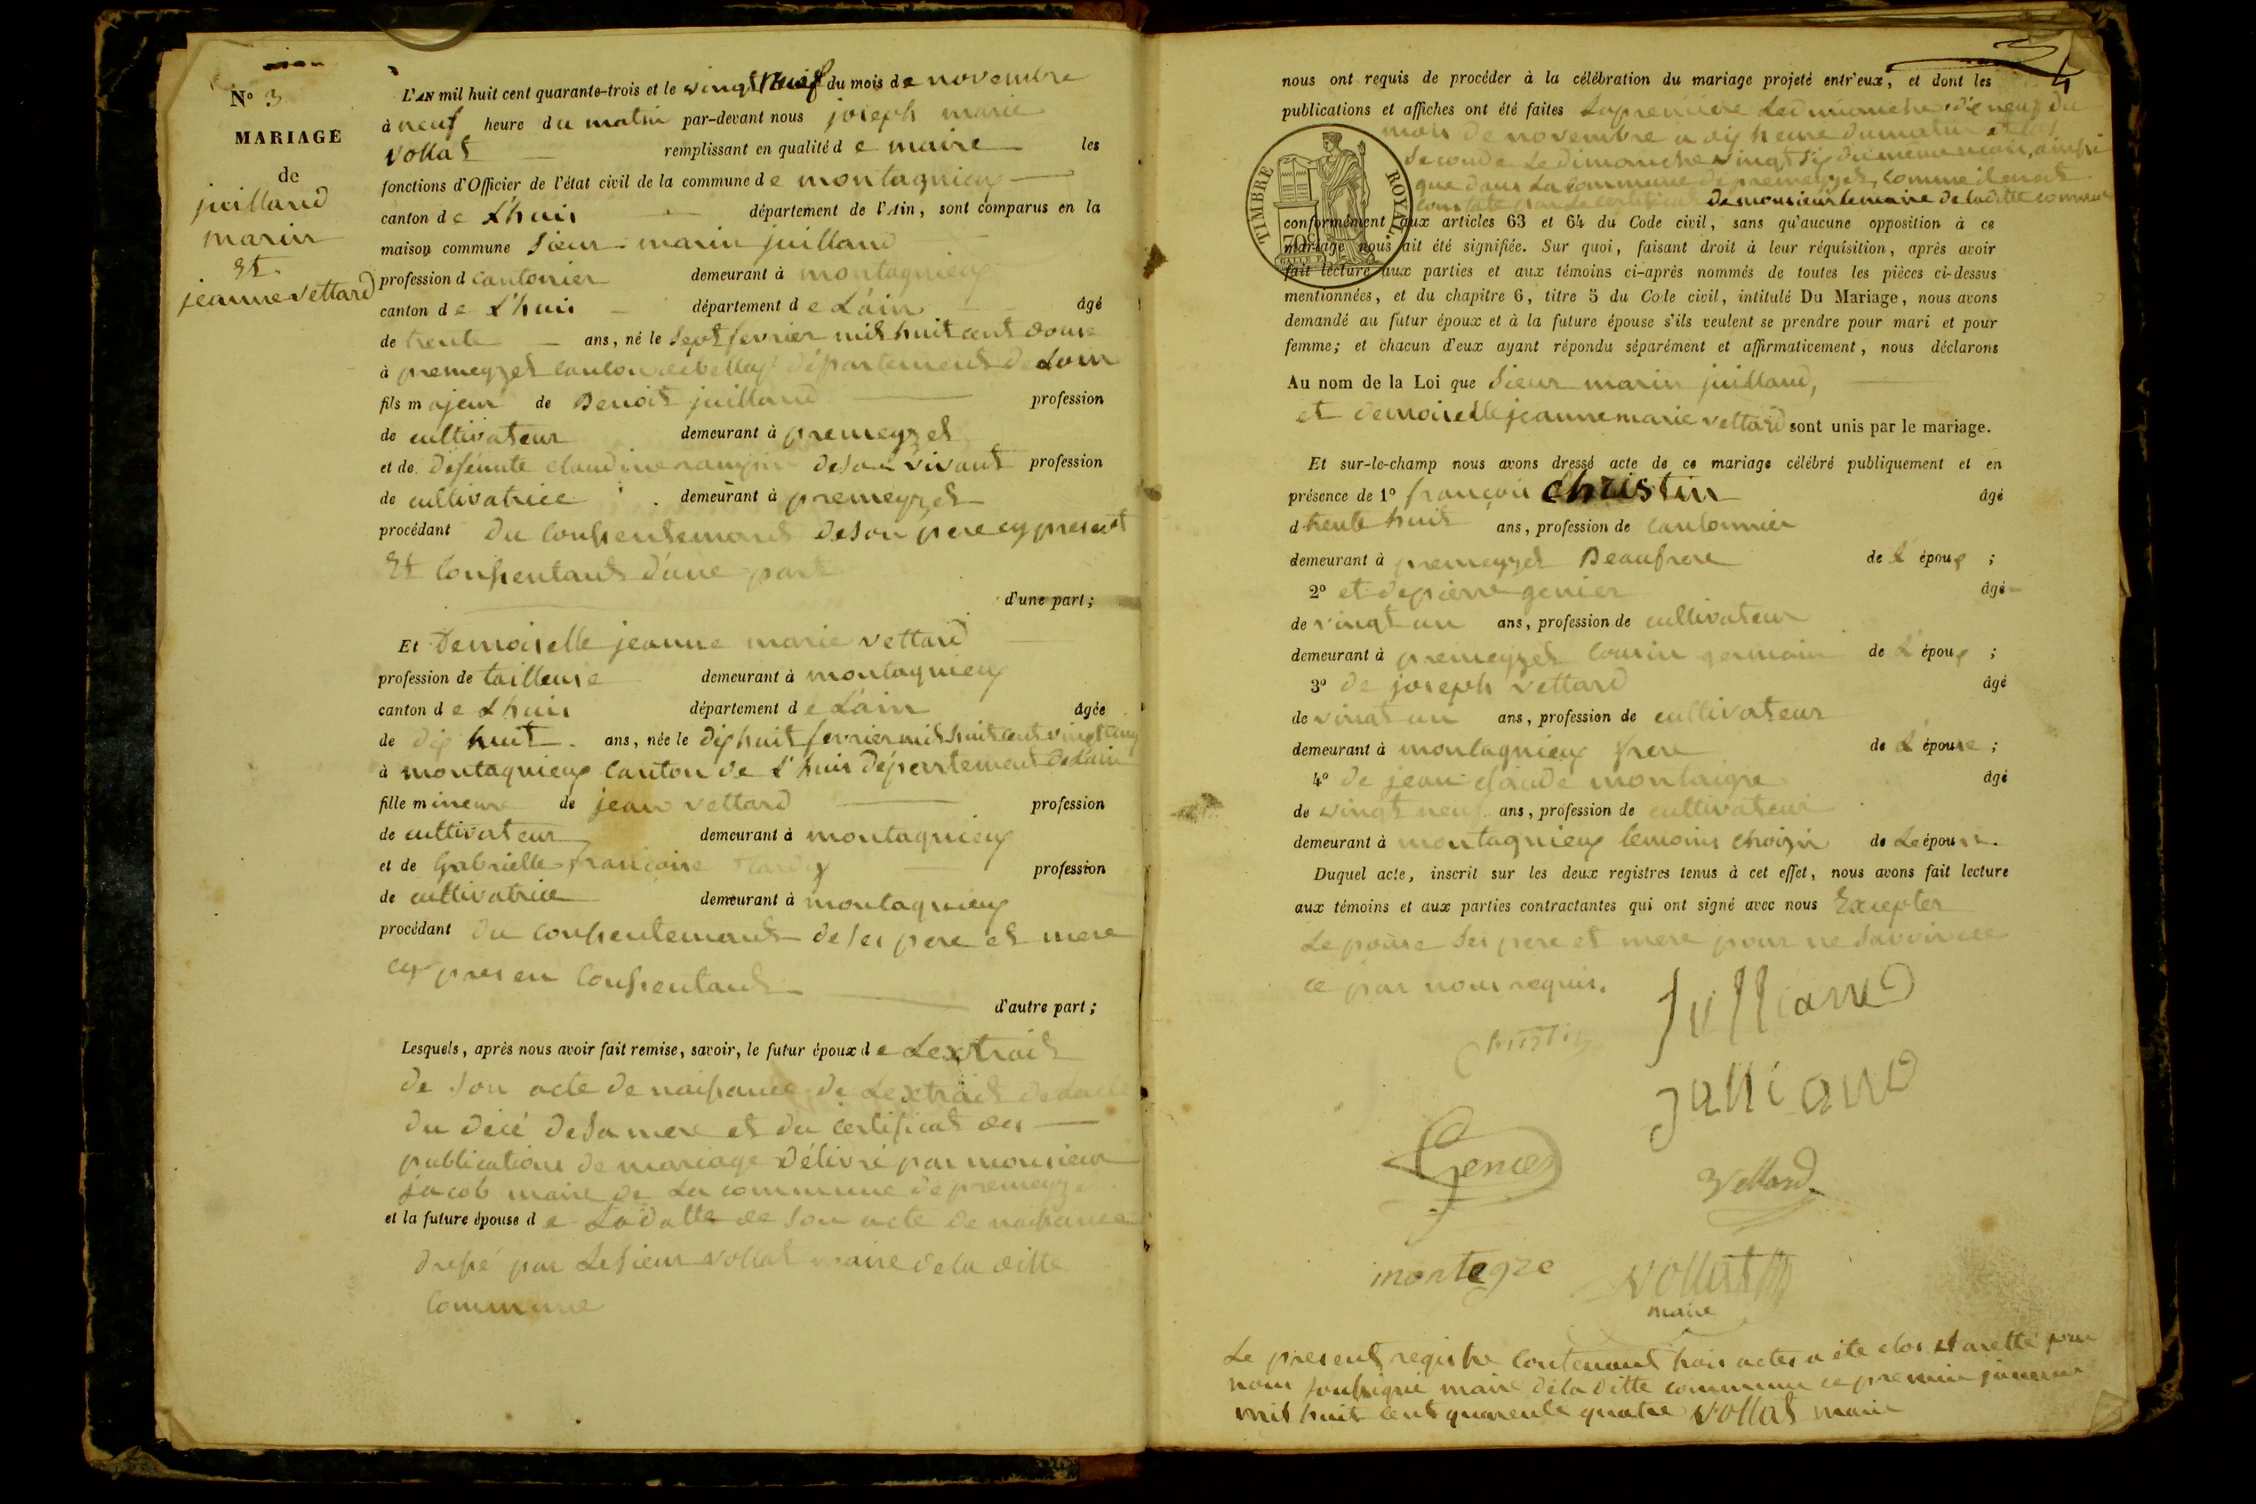 N° 3
MARIAGE
de
juilland
marin
Et
jeanne vettard
L'AN mil huit cent quarante-trois et le vingt neuf du mois de novembre
à neuf heure du matin par-devant nous joseph marie
vollat remplissant en qualité de maire les
fonctions d'Officier de l'état civil de la commune de montagnieux
canton de L'huis département de l'Ain, sont comparus en la
maison commune sieur marin juilland
profession d cantonier demeurant à montagnieux
canton de L'huis département de L'ain âgé
de trente ans, né le sept fevrier mil huit cent douze
à premeyzel canton de bellay département de Lain
fils majeur de Benoit juilland profession
de cultivateur demeurant à premeyzel
et de défunte claudine de son vivant profession
de cultivatrice demeurant à premeyzel
procédant du consentement de son pere cy present
Et Consentant d'une part
d'une part;
Et Demoiselle jeanne marie vettard
profession de tailleuse demeurant à montagnieux
canton de L'huis département de L'ain âgée
de dix huit ans, née le dix huit fevrier mil huit cent vingt cinq
à montagnieux canton de L'huis département de Lain
fille mineure de jean vettard profession
de cultivateur demeurant à montagnieux
et de Gabrielle francoise profession
de cultivatrice demeurant à montagnieux
procédant du consentement de ses pere et mere
cy pres en Consentant
d'autre part;
Lesquels, après nous avoir fait remise, savoir, le futur époux de Lextrait
de son acte de naissance de Lextrait de Lacte
du décé de sa mere et du certificat des
publications de mariage délivré par monsieur
jacob maire de La commune de premeyzel
et la future épouse de La datte de son acte de naissance
dressé par Le sieur vollat maire de la ditte
Commune
nous ont requis de procéder à la célébration du mariage projeté entr'eux, et dont les
publications et affiches ont été faites La premiere Le dimanche dix neuf du
mois de novembre a dix heure du matin et la
seconde Le dimanche vingt six du meme mois, ainsi
que dans La commune de premeyzel, comme il
constaté par Le certificat de monsieur Le maire de la ditte commune
TIMBRE ROYAL
conformément aux articles 63 et 64 du Code civil, sans qu'aucune opposition à ce
mariage nous ait été signifiée. Sur quoi, faisant droit à leur réquisition, après avoir
fait lecture aux parties et aux témoins ci-après nommés de toutes les pièces ci-dessus
mentionnées, et du chapitre 6, titre 5 du Code civil, intitulé Du Mariage, nous avons
demandé au futur époux et à la future épouse s'ils veulent se prendre pour mari et pour
femme; et chacun d'eux ayant répondu séparément et affirmativement, nous déclarons
Au nom de la Loi que Sieur marin juilland,
et demoiselle jeanne marie vettard sont unis par le mariage.
Et sur-le-champ nous avons dressé acte de ce mariage célébré publiquement et en
présence de 1° françois christin âgé
d trente huit ans, profession de cantonnier
demeurant à premeyzel Beaufrere de L'époux;
2° et de pierre genier âgé
de vingt un ans, profession de cultivateur
demeurant à premeyzel cousin germain de L'époux;
3° de joseph vettard âgé
de vingt un ans, profession de cultivateur
demeurant à montagnieux frere de L'épouse;
4° de jean claude montaigre âgé
de vingt neuf ans, profession de cultivateur
demeurant à montagnieux temoins choizi de Le épouse.
Duquel acte, inscrit sur les deux registres tenus à cet effet, nous avons fait lecture
aux témoins et aux parties contractantes qui ont signé avec nous Excepter
Le pouse ses pere et mere pour ne savoir de
ce par nous requis.
julliand
christin
julliand
Genier
Vettard
montegre
vollat
maire
Le present registre Contenant trois actes a été clos et aretté par
nous soussigné maire de la ditte commune ce premier janvier
mil huit cent quarente quatre vollat maire